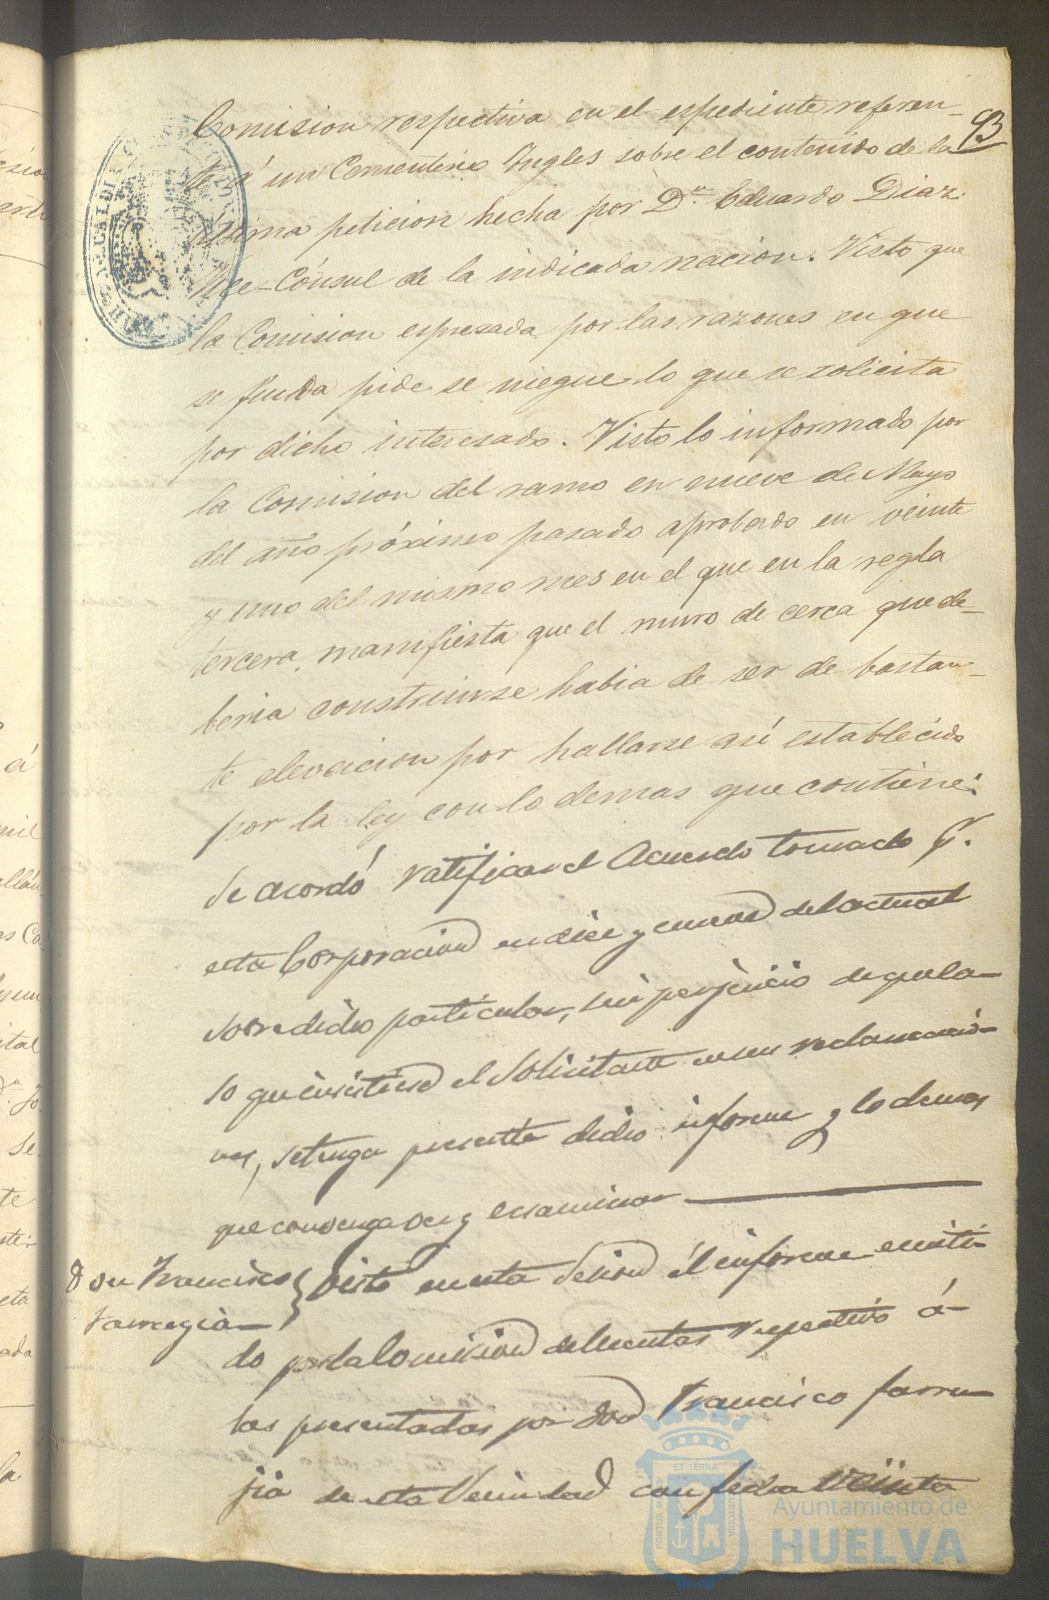 93
Comision respectiva en el espediente referen-
te á un Cementerio Ingles sobre el contenido de la
última peticion hecha por D.n Eduardo Diaz
Vice-Cónsul de la indicada nacion. Visto que
la Comision espresada por las razones en que
se funda pide se niegue lo que se solicita
por dicho interesado. Visto lo informado por
la Comision del ramo en nueve de Mayo
del año próximo pasado aprobado en veinte
y uno del mismo mes en el que en la regla
tercera manifiesta que el muro de cerca que de-
beria construirse habia de ser de bastan-
te elevacion por hallarse así establecido
por la ley con lo demas que contiene:
Se acordó ratificar el Acuerdo tomado p.r
esta Corporacion en diez y nueve del actual
sobre dicho particular, sin perjuicio de que ca-
so que insistiese el solicitante en sus reclamacio-
nes, se tenga presente dicho informe y lo demas
que convenga ver y ecsaminar
Don Francisco
Farregia
Visto en esta Sesion el informe emiti-
do por la Comision de Cuentas respectivo á
las presentadas por Don Francisco Farre-
jia de esta Vecindad con fecha veinte
Ayuntamiento de
HUELVA